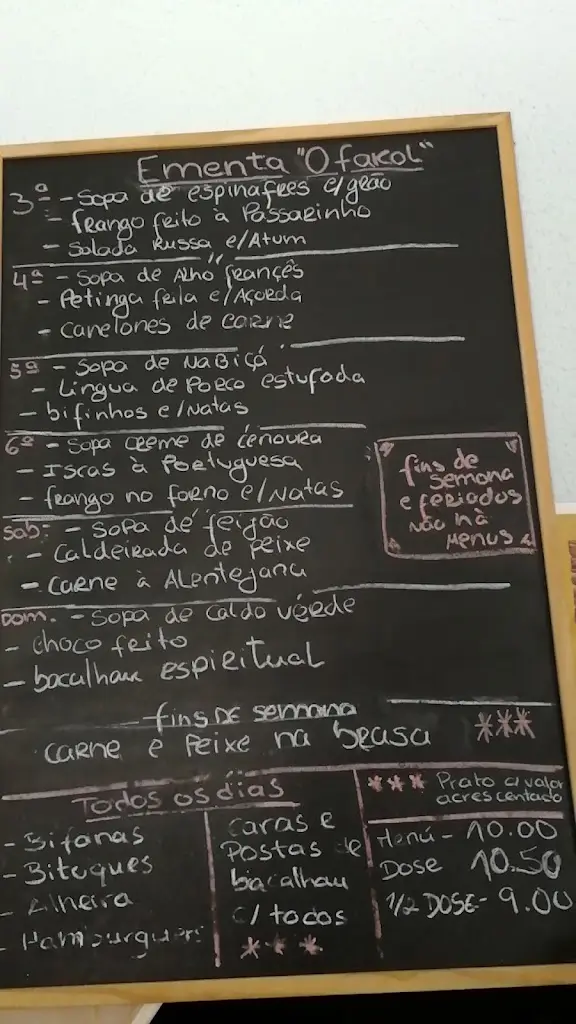 Ementa "O farol"
3ª - Sopa de espinafres c/grão
- frango frito à Passarinho
- Salada Russa c/Atum
4ª - Sopa de Alho françês
- Petinga frita c/Açorda
- canelones de carne
5ª - Sopa de Nabiça
- Lingua de Porco estufada
- bifinhos c/Natas
6ª - Sopa creme de cenoura
- Iscas à Portuguesa
- frango no forno c/Natas
fins de
semana
e feriados
não há
Menus
Sab: - Sopa de feijão
- Caldeirada de peixe
- Carne à Alentejana
Dom. - Sopa de Caldo vêrde
- choco frito
- bacalhau espiritual
fins de semana
carne e Peixe na brasa ***
Todos os dias
- Bifanas
- Bitoques
- Alheira
- Hamburguers
caras e
Postas de
bacalhau
c/todos
***
*** Prato c/valor
acrescentado
Menú - 10.00
Dose 10.50
1/2 DOSE - 9.00